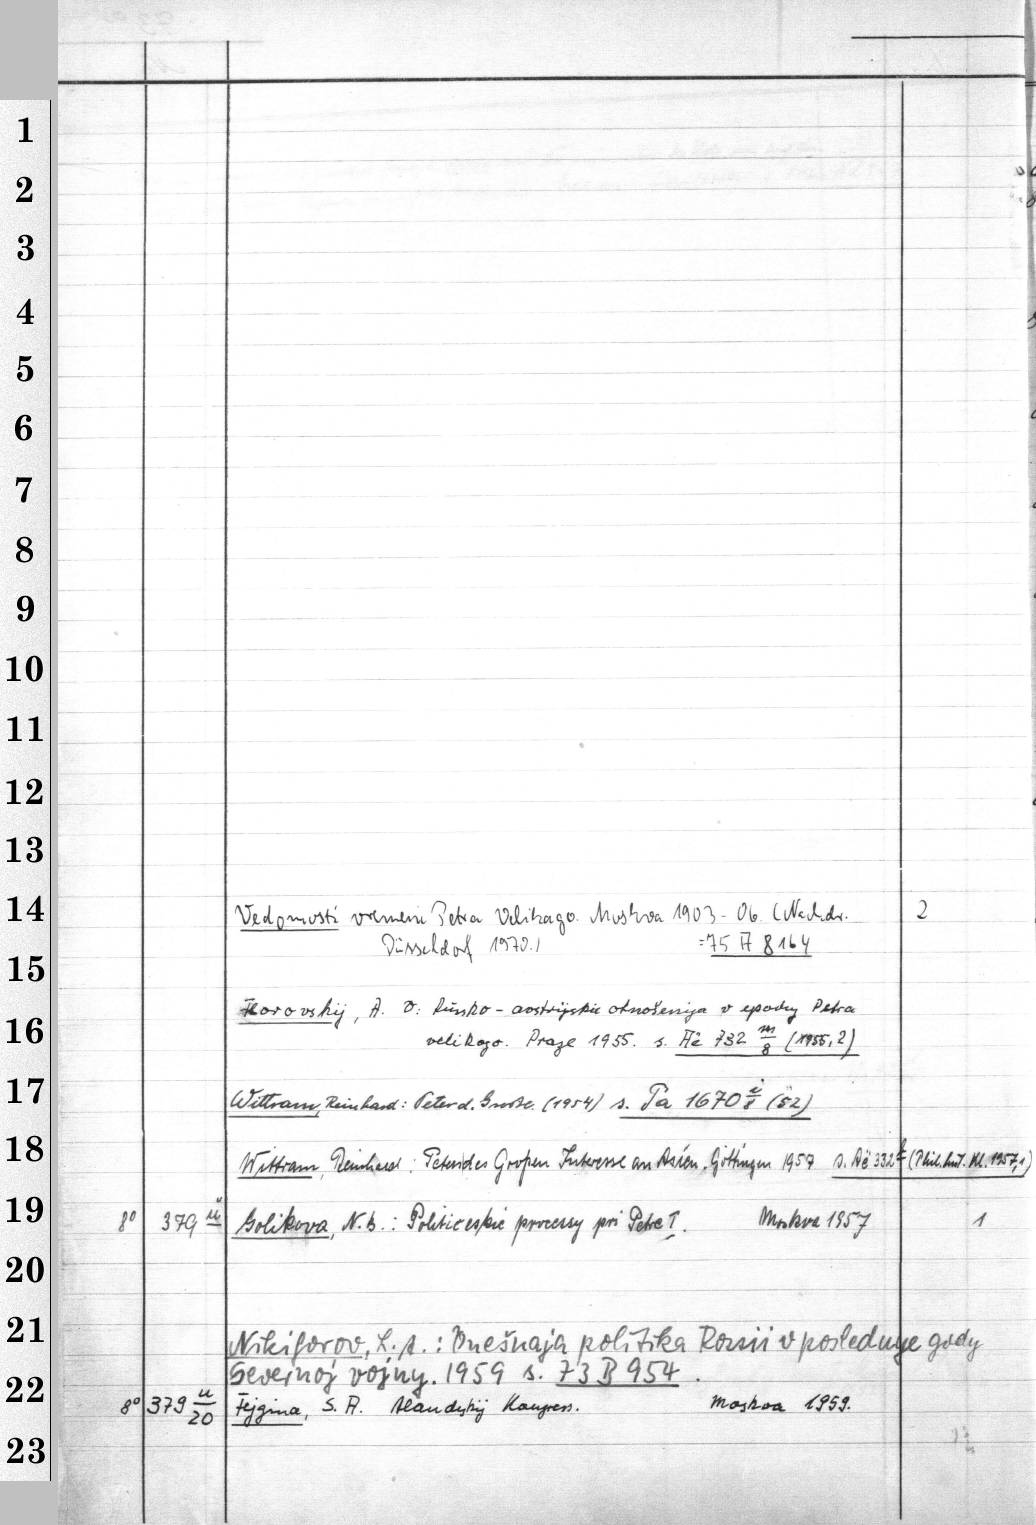 1
2
3
4
5
6
7
8
9
10
11
12
13
14
15
16
17
18
19
20
21
22
23
Vedomosti vremeni Petra Velikago. Moskva 1903-06. (Nachdr. 2
Düsseldorf 1970.) =75 A 8164
Florovskij, A. V: Russko-avstrijskie otnošenija v epochu Petra
velikago. Prage 1955. s. Ač 732 m/8 (1955,2)
Wittram, Reinhard: Peter d. Große. (1954) s. Pa 1670 i/8 (52)
Wittram, Reinhard: Peters des Großen Interesse an Asien. Göttingen 1957 s. Ač 332 (Phil. hist. Kl. 1957,1)
8° 379 ü Golikova, N. B.: Političeskie processy pri Petre I. Moskva 1957 1
Nikiforov, L. A.: Vnešnaja politika Rossii v poslednye gody
Severnoj vojny. 1959 s. 73 B 954.
8° 379 u/20 Fejgina, S. A. Alandskij Kongress. Moskva 1959.